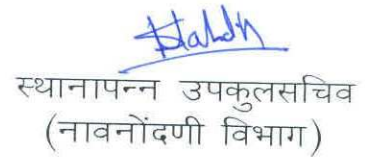 स्थानापन्न उपकुलसचिव
(नावनोंदणी विभाग)